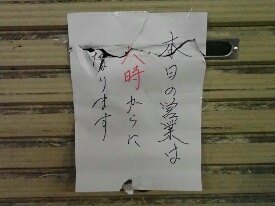 本日の営業は
六時からに
なります